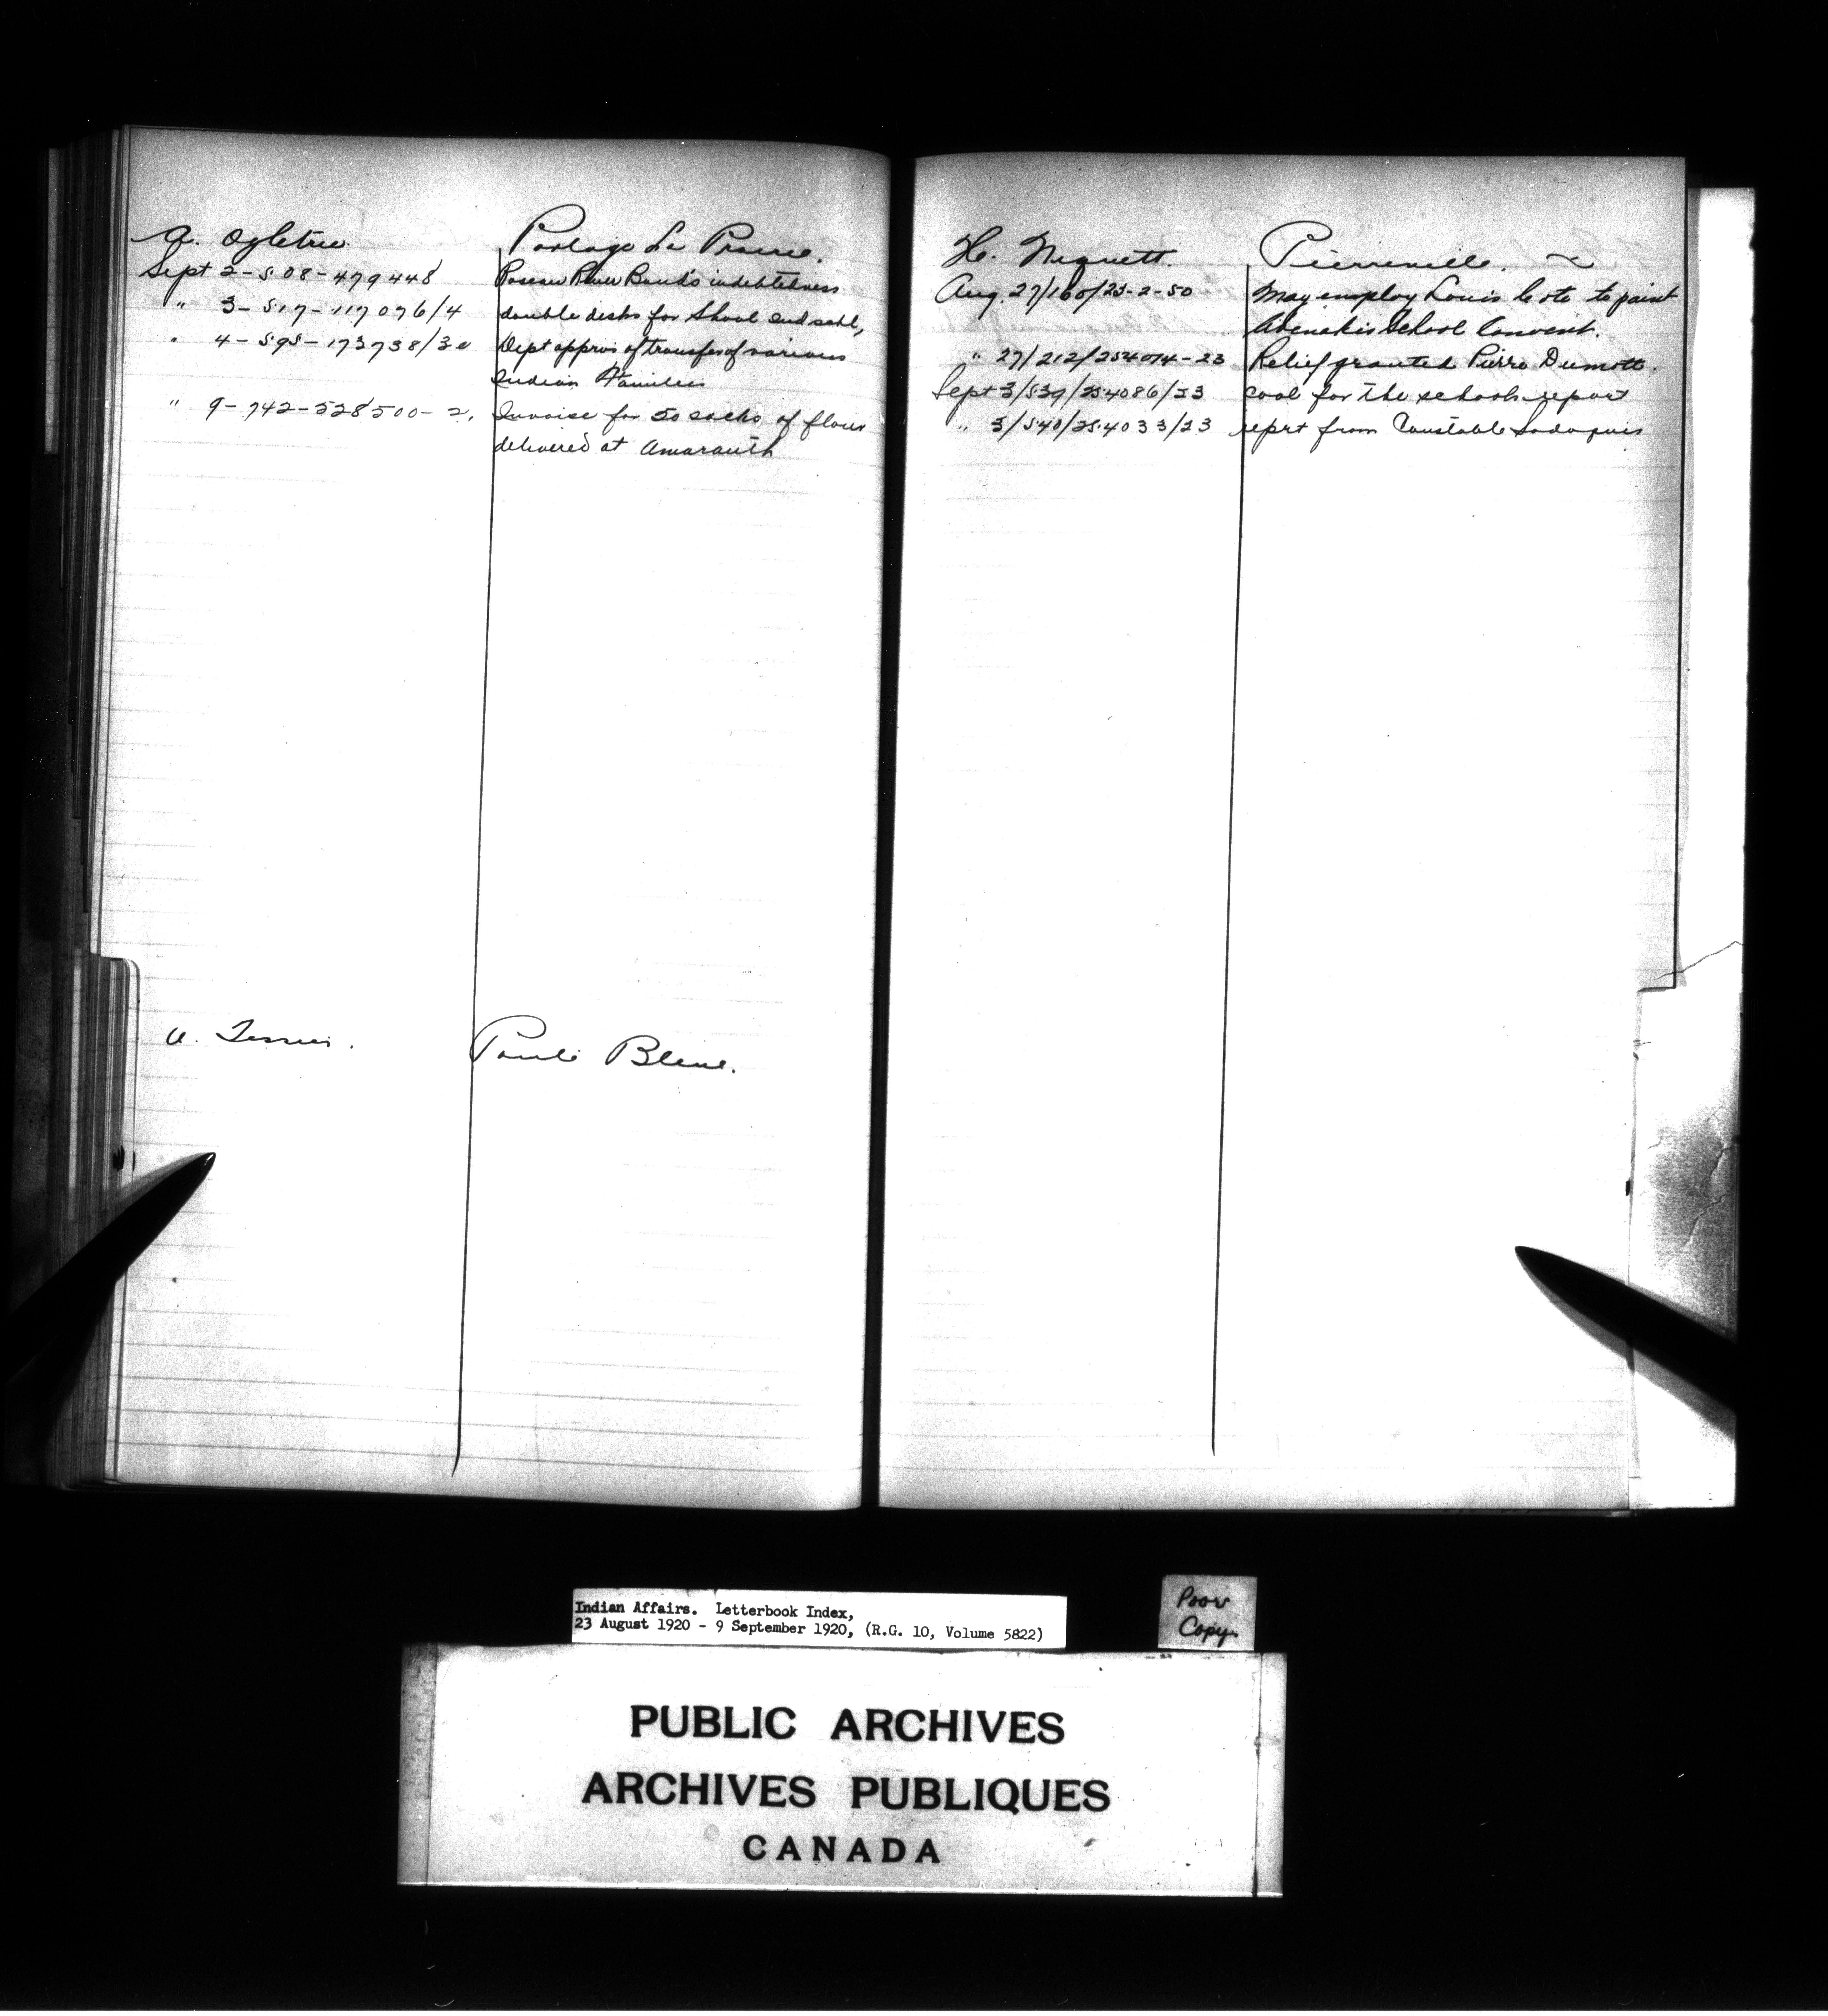 A. Ogletree. Portage La Prairie.
Sept 2-508-479448 Roseau River Band's indebtedness
" 3-517-117076/4 double desks for Shoal
" 4-595-173738/30 Dept approves of transfer of various
Indian Families
" 9-742-528500-2. Invoice for 50 sacks of flour
delivered at Amaranth
A. Tessier. Pointe Bleue.
H. Niquett. Pierreville.
Aug. 27/160/23-2-50 May employ Louis Cote to paint
Abenakis School Convent.
" 27/212/254074-23 Relief granted Pierre Dumott.
Sept 3/539/254086/23 coal for the schools report
" 3/540/254033/23 reprt from Constable
Indian Affairs. Letterbook Index,
23 August 1920 - 9 September 1920, (R.G. 10, Volume 5822)
Poor
Copy.
PUBLIC ARCHIVES
ARCHIVES PUBLIQUES
CANADA